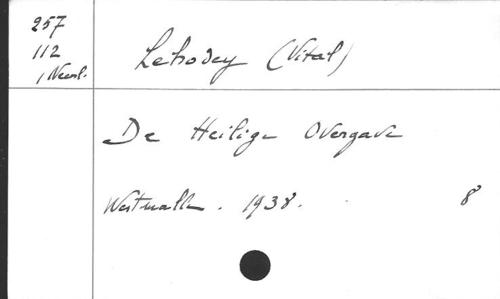 257
112
/ Neerl.
Lehodey (Vital)
De Heilige Overgave
Westmalle. 1938. 8